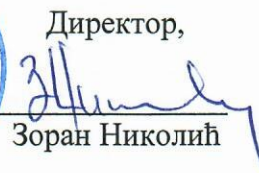 Директор,
Зоран Николић